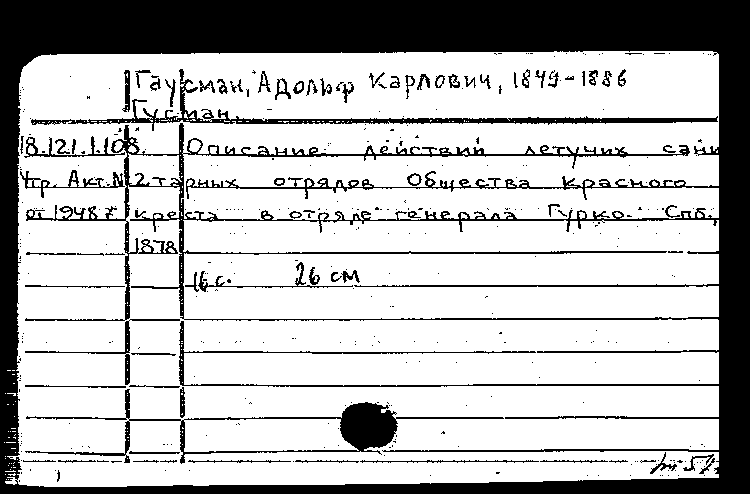 Гаусман, Адольф Карлович, 1849-1886
Гусман.
18.121.1.108. Описание действий летучих сани
Утр. Акт.N2 тарных отрядов Общества Красного
от 1948 г. креста в отряде генерала Гурко. Спб.,
1878
16 с. 26 см